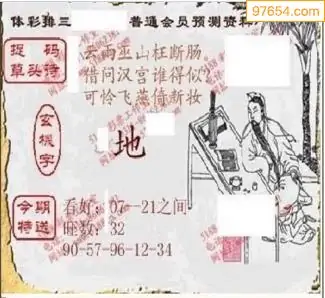 97654.com
体彩排三 普通会员预测资料
捉码
草头诗
雨巫山枉断肠
借问汉宫谁得似?
可怜飞燕倚新妆
玄機字
地
今期
特送
看好:07—21之间
旺数:32
90-57-96-12-34